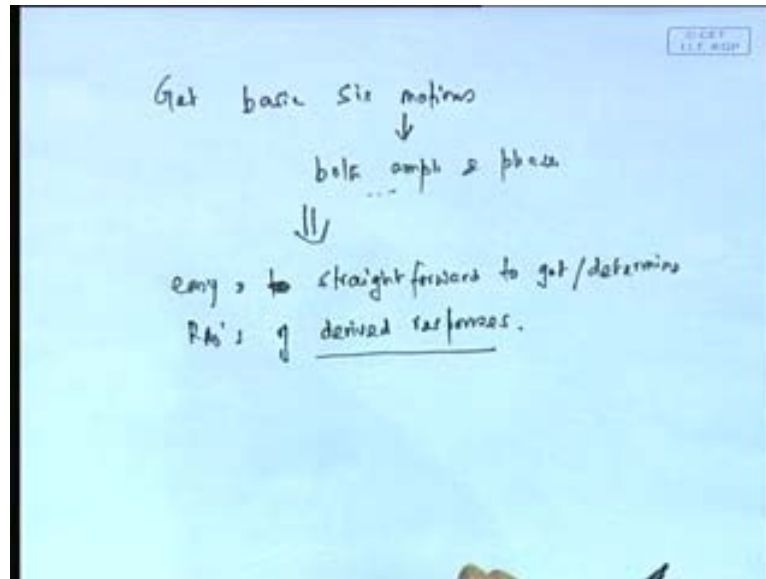 © CET
I.I.T. KGP
Get basic six motions
both ampl & phase
easy, to straight forward to get/determine
RAO's of derived responses.